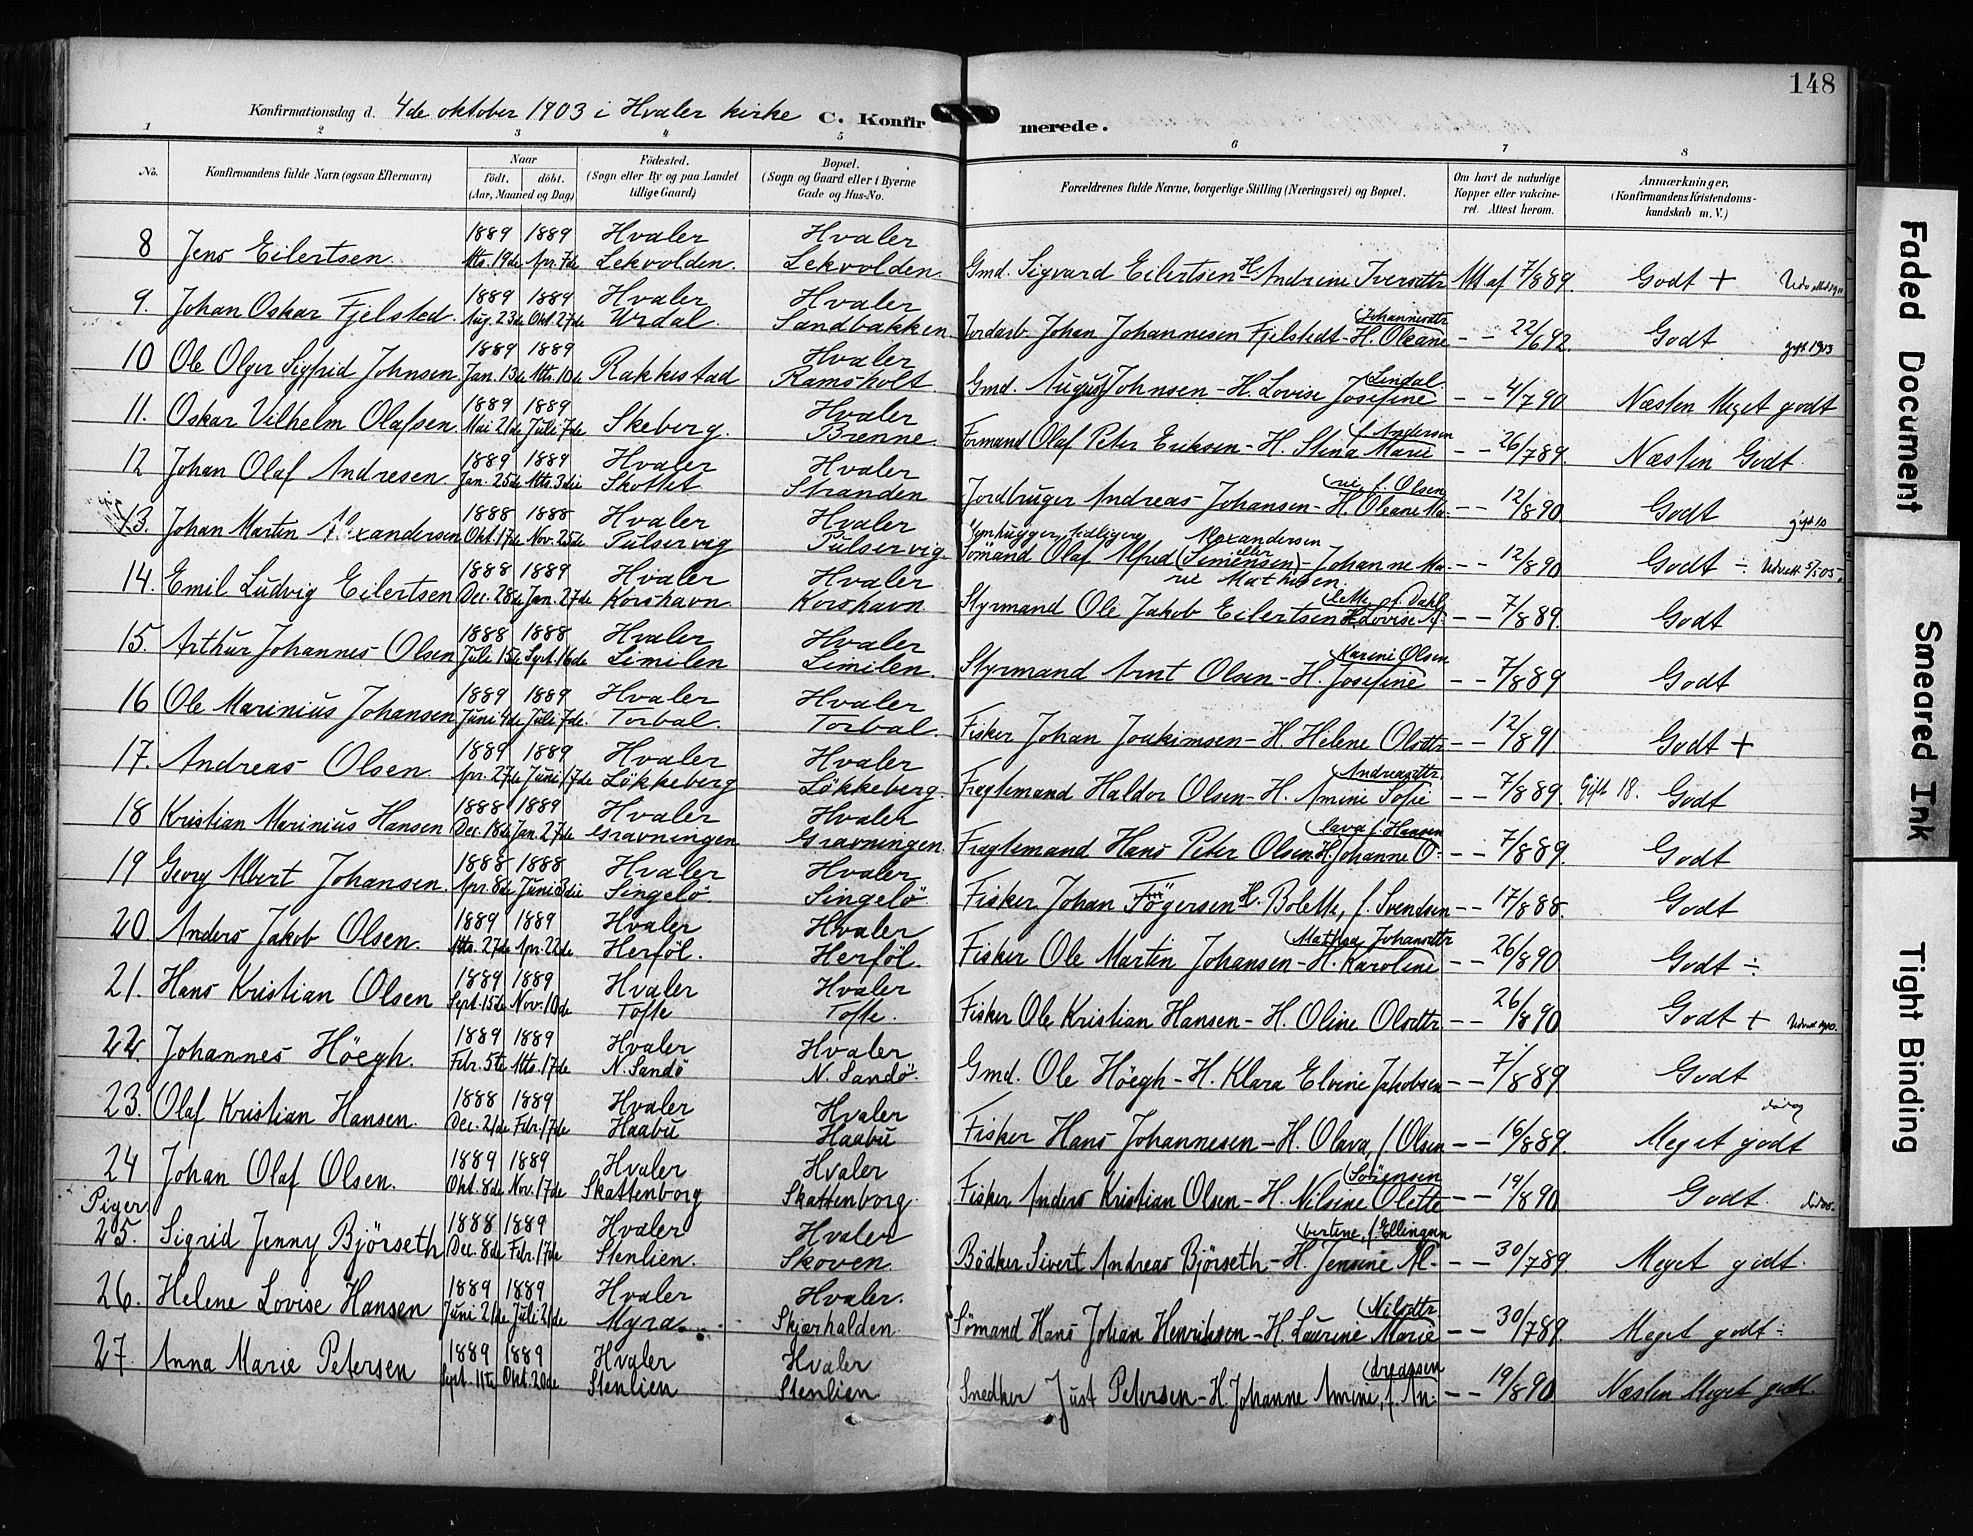 148
Konfirmationsdag d. 4de oktober 1903 i Hvaler kirke C. Konfirmerede.
1 2 3 4 5 6 7 8
No. Konfirmandens fulde Navn (ogsaa Efternavn) Naar födt. döbt. (Aar, Maaned og Dag) Födested. (Sogn eller By og paa Landet tillige Gaard) Bopæl. (Sogn og Gaard eller i Byerne Gade og Hus-No. Forældrenes fulde Navne, borgerlige Stilling (Næringsvei) og Bopæl. Om havt de naturlige Kopper eller vakcineret. Attest herom. Anmærkninger. (Konfirmandens Kristendomskundskab m. V.)
8 Jens Eilertsen 1889 Mts. 19de 1889 Apr. 7de Hvaler Lekvolden. Hvaler Lekvolden. Gmd. Sigvard Eilertsen H. Andrine Iversdtr Att af 7/889. Godt +
9. Johan Oskar Fjelsted 1889 Aug. 23de 1889 Okt. 27de Hvaler Urdal. Hvaler Sandbakken Jordarb. Johan Johannesen Fjelstedt - H. Oleane Johannesdtr - - 22/692. Godt gift 1913
10 Ole Olger Sigfrid Johnsen 1889 Jan. 13de 1889 Mts. 10de Rakkestad Hvaler Ramsholt Gmd. August Johnsen - H. Lovise Josefine Lindal. - - 4/790 Næsten Meget godt
11. Oskar Vilhelm Olafsen 1889 Mai 21de 1889 Juli 7de Skeberg. Hvaler Brenne Formand Olaf Peter Eriksen - H. Stina Marie f. Andersen - - 26/789. Næsten Godt.
12 Johan Olaf Andresen 1889 Jan. 25de 1889 Mts. 3die Hvaler Skottet Hvaler Stranden Jordbruger Andreas Johansen - H. Oleane Marie, f. Olsen - - 12/890. Godt gift 10
13. Johan Martin Alexandersen 1888 Okt. 17de 1888 Nov. 25de Hvaler Pulservig Hvaler Pulservig. Stenhugger, tidligere Sömand Olaf Alfred Alexandersen (eller Simensen) - Johanne Marie Mathisen. - - 12/890 Godt ÷ Udvett. 5/505.
14. Emil Ludvig Eilertsen 1888 Dec. 28de 1889 Jan. 27de Hvaler Korshavn. Hvaler Korshavn. Styrmand Ole Jakob Eilertsen H. Lovise f. Dahl - - 7/889. Godt
15. Arthur Johannes Olsen 1888 Juli 15de 1888 Sept. 16de Hvaler Limilen Hvaler Limilen. Styrmand Arnt Olsen - H. Josefine Karine Olsen - - 7/889 Godt
16 Ole Marinius Johansen 1889 Juni 4de 1889 Juli 7de. Hvaler Torbal. Hvaler Torbal. Fisker Johan Joakimsen - H Helene Olsdtr - - 12/891 Godt +
17. Andreas Olsen 1889 Apr. 27de 1889 Juni 17de Hvaler Lökkeberg Hvaler Lökkeberg. Fragtemand Haldor Olsen - H. Amine Sofie Andreasdtr. - - 7/889. Gift 18. Godt
18 Kristian Marinius Hansen 1888 Dec. 18de 1889 Jan. 27de Hvaler Gravningen Hvaler Gravningen. Fragtemand Hans Peter Olsen H. Johanne Olava f. Hansen - - 7/889. Godt
19 Georg Albert Johansen. 1888 Apr. 8de 1888 Juni 3die Hvaler Singelö Hvaler Singelö Fisker Johan Fögersen H. Bolette, f. Svendsen - - 17/888. Godt
20 Anders Jakob Olsen. 1889 Mts. 27de 1889 Apr. 22de Hvaler Herföl. Hvaler Herföl. Fisker Ole Martin Johansen - H. Karoline Mathea Johansdtr - - 26/890 Godt ÷
21. Hans Kristian Olsen 1889 Sept. 15de 1889 Nov. 10de Hvaler Tofte Hvaler Tofte. Fisker Ole Kristian Hansen - H. Oline Olsdtr. - - 26/890 Godt +
22. Johannes Höegh. 1889 Febr. 5te 1889 Mts. 17de Hvaler N. Sandö Hvaler N. Sandö. Gmd. Ole Höegh - H. Klara Elvine Jakobsen - - 7/889 Godt
23. Olaf Kristian Hansen. 1888 Dec. 21de 1889 Febr. 17de Hvaler Haabu Hvaler Haabu Fisker Hans Johannesen - H. Olava, f. Olsen - - 16/889. Meget godt
24 Johan Olaf Olsen. 1889 Okt. 8de 1889 Nov. 17de Hvaler Skattenborg Hvaler Skattenborg. Fisker Anders Kristian Olsen - H. Nilsine Olette Sörensen - - 19/890 Godt.
Piger
25. Sigrid Jenny Björseth 1888 Dec. 8de 1889 Febr. 17de Hvaler Stenlien. Hvaler Skoven Bödker Sivert Andreas Björseth - H. Jensine Albertine, f. Ellingsen - - 30/789 Meget godt.
26. Helene Lovise Hansen 1889 Juni 21de 1889 Juli 21de Hvaler Myra. Hvaler. Skjærhalden. Sömand Hans Johan Henriksen - H Laurine Marie Nilsdtr - - 30/789 Meget godt ÷
27. Anna Marie Petersen 1889 Sept. 11te 1889 Okt. 20de Hvaler Stenlien Hvaler Stenlien Snedker Just Petersen - H. Johanne Amine, f. Andreassen - - 19/890 Næsten Meget godt.
Faded Document
Smeared Ink
Tight Binding